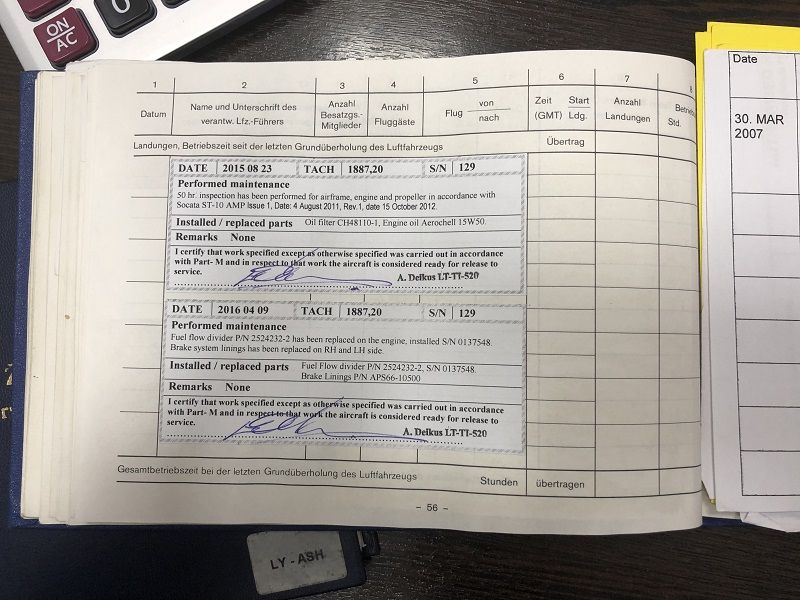 ON
AC
0
1 2 3 4 5 6 7 8
Datum
Name und Unterschrift des
verantw. Lfz.-Führers
Anzahl
Besatzgs.-
Mitglieder
Anzahl
Fluggäste
Flug von
nach
Zeit Start
(GMT) Ldg.
Anzahl
Landungen
Std.
Landungen, Betriebszeit seit der letzten Grundüberholung des Luftfahrzeugs
Übertrag
DATE 2015 08 23 TACH 1887,20 S/N 129
Performed maintenance
50 hr. inspection has been performed for airframe, engine and propeller in accordance with
Socata ST-10 AMP Issue 1, Date: 4 August 2011, Rev.1, date 15 October 2012.
Installed / replaced parts Oil filter CH48110-1, Engine oil Aerochell 15W50.
Remarks None
I certify that work specified except as otherwise specified was carried out in accordance
with Part- M and in respect to that work the aircraft is considered ready for release to
service.
A. Deikus LT-TI-520
DATE 2016 04 09 TACH 1887,20 S/N 129
Performed maintenance
Fuel flow divider P/N 2524232-2 has been replaced on the engine, installed S/N 0137548.
Brake system linings has been replaced on RH and LH side.
Installed / replaced parts Fuel Flow divider P/N 2524232-2, S/N 0137548.
Brake Linings P/N APS66-10500
Remarks None
I certify that work specified except as otherwise specified was carried out in accordance
with Part- M and in respect to that work the aircraft is considered ready for release to
service.
A. Deikus LT-TI-520
Gesamtbetriebszeit bei der letzten Grundüberholung des Luftfahrzeugs
Stunden
übertragen
- 56 -
Date
30. MAR
2007
LY - ASH